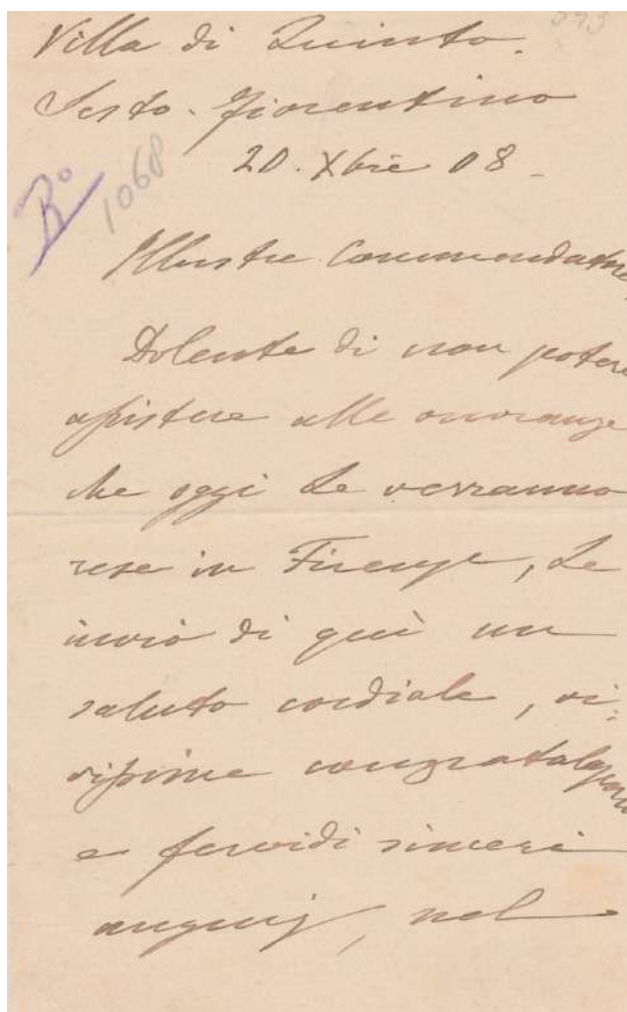 593
Villa di Quinto.
Sesto. Fiorentino
20. Xbre 08.
Ro 1068
Illustre Commendatore,
Dolente di non potere
assistere alle onoranze
che oggi Le verranno
rese in Firenze, Le
invio di quì un
saluto cordiale, vi:
vissime congratulazioni
e fervidi sinceri
augurj, nel